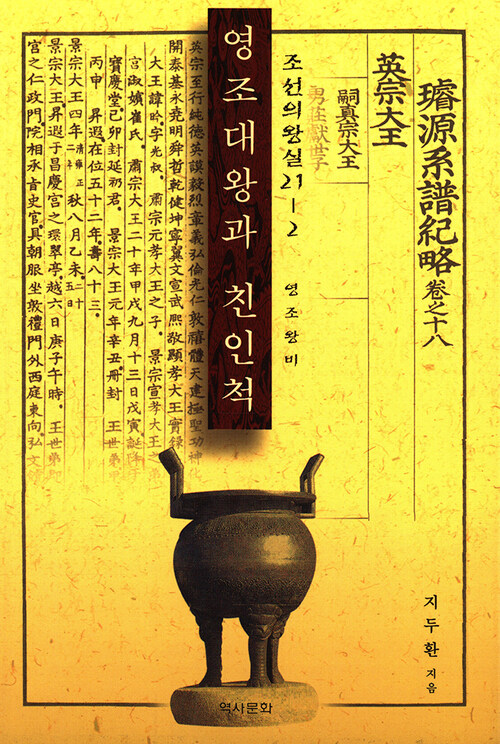 璿源系譜紀略 卷之十八
英宗大王
嗣眞宗大王
男莊獻世子
조선의왕실 21-2 영조왕비
영조대왕과 친인척
英宗至行純德英謨毅烈章義弘倫光仁敦禧體天建極聖功神化
開泰基永堯明舜哲乾健坤寧翼文宣武熙敬顯孝大王實錄
大王諱昑字光叔。肅宗元孝大王之子。景宗宣孝大王之
宮淑嬪崔氏。肅宗大王二十年甲戌九月十三日戊寅誕降于
寶慶堂己卯封延礽君。景宗大王元年辛丑冊封 王世弟
丙申 昇遐在位五十二年。壽八十三。
景宗大王四年 清雍正二年 秋八月乙未
景宗大王昇遐于昌慶宮之環翠亭。越六日庚子午時。王世弟卽
宮之仁政門院相承旨史官具朝服坐敦禮門外西庭東向。弘文
지두환 지음
역사문화